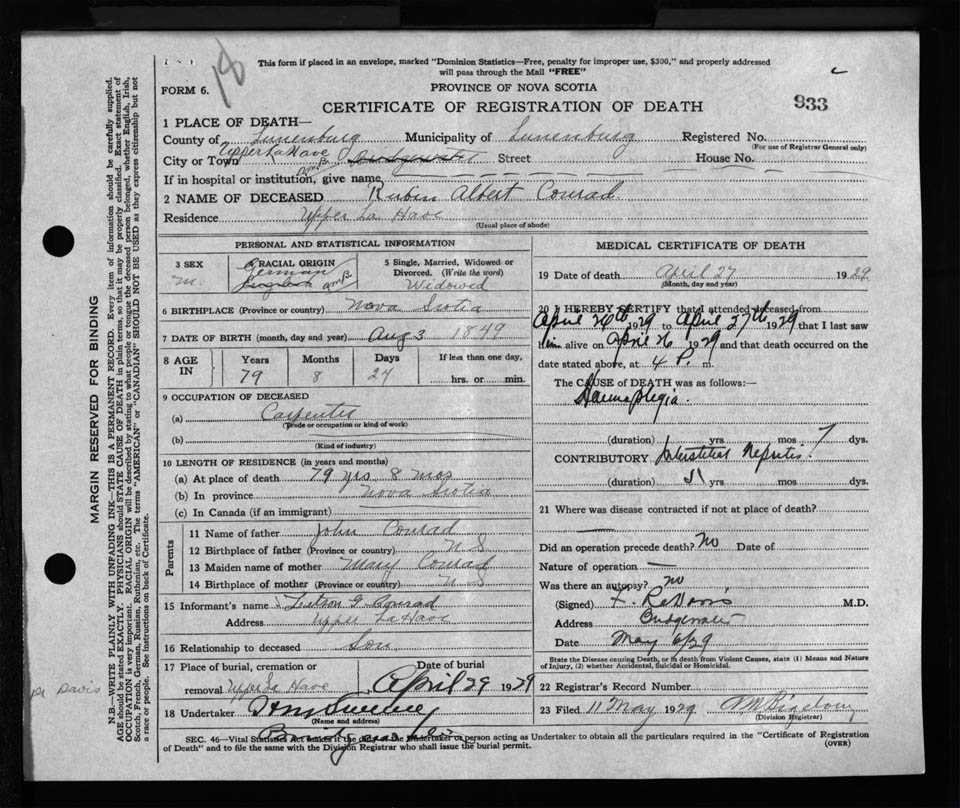 This form if placed in an envelope, marked "Dominion Statistics—Free, penalty for improper use, $300," and properly addressed
will pass through the Mail "FREE"
18
FORM 6.
PROVINCE OF NOVA SCOTIA
CERTIFICATE OF REGISTRATION OF DEATH
933
1 PLACE OF DEATH—
County of Lunenburg Municipality of Lunenburg Registered No.
(For use of Registrar General only)
City or Town Upper LaHave Bridgewater Street House No.
If in hospital or institution, give name
2 NAME OF DECEASED Rubin Albert Conrad
Residence Upper La Have
(Usual place of abode)
PERSONAL AND STATISTICAL INFORMATION
3 SEX
m.
4 RACIAL ORIGIN
German
English
5 Single, Married, Widowed or
Divorced. (Write the word)
Widowed
6 BIRTHPLACE (Province or country) Nova Scotia
7 DATE OF BIRTH (month, day and year) Aug 3 1849
8 AGE IN
Years Months Days If less than one day,
79 8 24 hrs. or min.
9 OCCUPATION OF DECEASED
(a) Carpenter
(Trade or occupation or kind of work)
(b)
(Kind of industry)
10 LENGTH OF RESIDENCE (in years and months)
(a) At place of death 79 yrs 8 mos
(b) In province Nova Scotia
(c) In Canada (if an immigrant)
Parents
11 Name of father John Conrad
12 Birthplace of father (Province or country) N S
13 Maiden name of mother Mary Conrad
14 Birthplace of mother (Province or country) N S
15 Informant's name G Conrad
Address Upper LaHave
16 Relationship to deceased Son
17 Place of burial, cremation or
removal Upper La Have
Date of burial
April 29 1929
18 Undertaker
(Name and address)
MEDICAL CERTIFICATE OF DEATH
19 Date of death April 27 1929
(Month, day and year)
20 I HEREBY CERTIFY that I attended deceased from
April 24th 1929 to April 27th 1929 that I last saw
him alive on April 26 1929 and that death occurred on the
date stated above, at 4 P. m.
The CAUSE of DEATH was as follows:—
Haemaplegia.
(duration) yrs mos 7 dys.
CONTRIBUTORY Interstitial Nephritis.
(duration) 5 yrs mos dys.
21 Where was disease contracted if not at place of death?
Did an operation precede death? No Date of
Nature of operation —
Was there an autopsy? no
(Signed) M.D.
Address Bridgewater
Date May 6/29
State the Disease causing Death, or in death from Violent Causes, state (1) Means and Nature
of Injury, (2) whether Accidental, Suicidal or Homicidal.
22 Registrar's Record Number
23 Filed 11 May 1929
(Division Registrar)
SEC. 46—Vital Statistics Act makes it the duty of the Undertaker or person acting as Undertaker to obtain all the particulars required in the "Certificate of Registration
of Death" and to file the same with the Division Registrar who shall issue the burial permit.
(OVER)
MARGIN RESERVED FOR BINDING
N.B.—WRITE PLAINLY WITH UNFADING INK—THIS IS A PERMANENT RECORD. Every item of information should be carefully supplied.
AGE should be stated EXACTLY. PHYSICIANS should STATE CAUSE OF DEATH in plain terms, so that it may be properly classified. Exact statement of
OCCUPATION is very important. RACIAL ORIGIN will be described by stating to what people or tongue the deceased person belonged, whether English, Irish,
Scotch, French, German, Russian, Ruthenian, etc. The terms "AMERICAN" or "CANADIAN" SHOULD NOT BE USED as they express citizenship but not
a race or people. See instructions on back of Certificate.
Davis